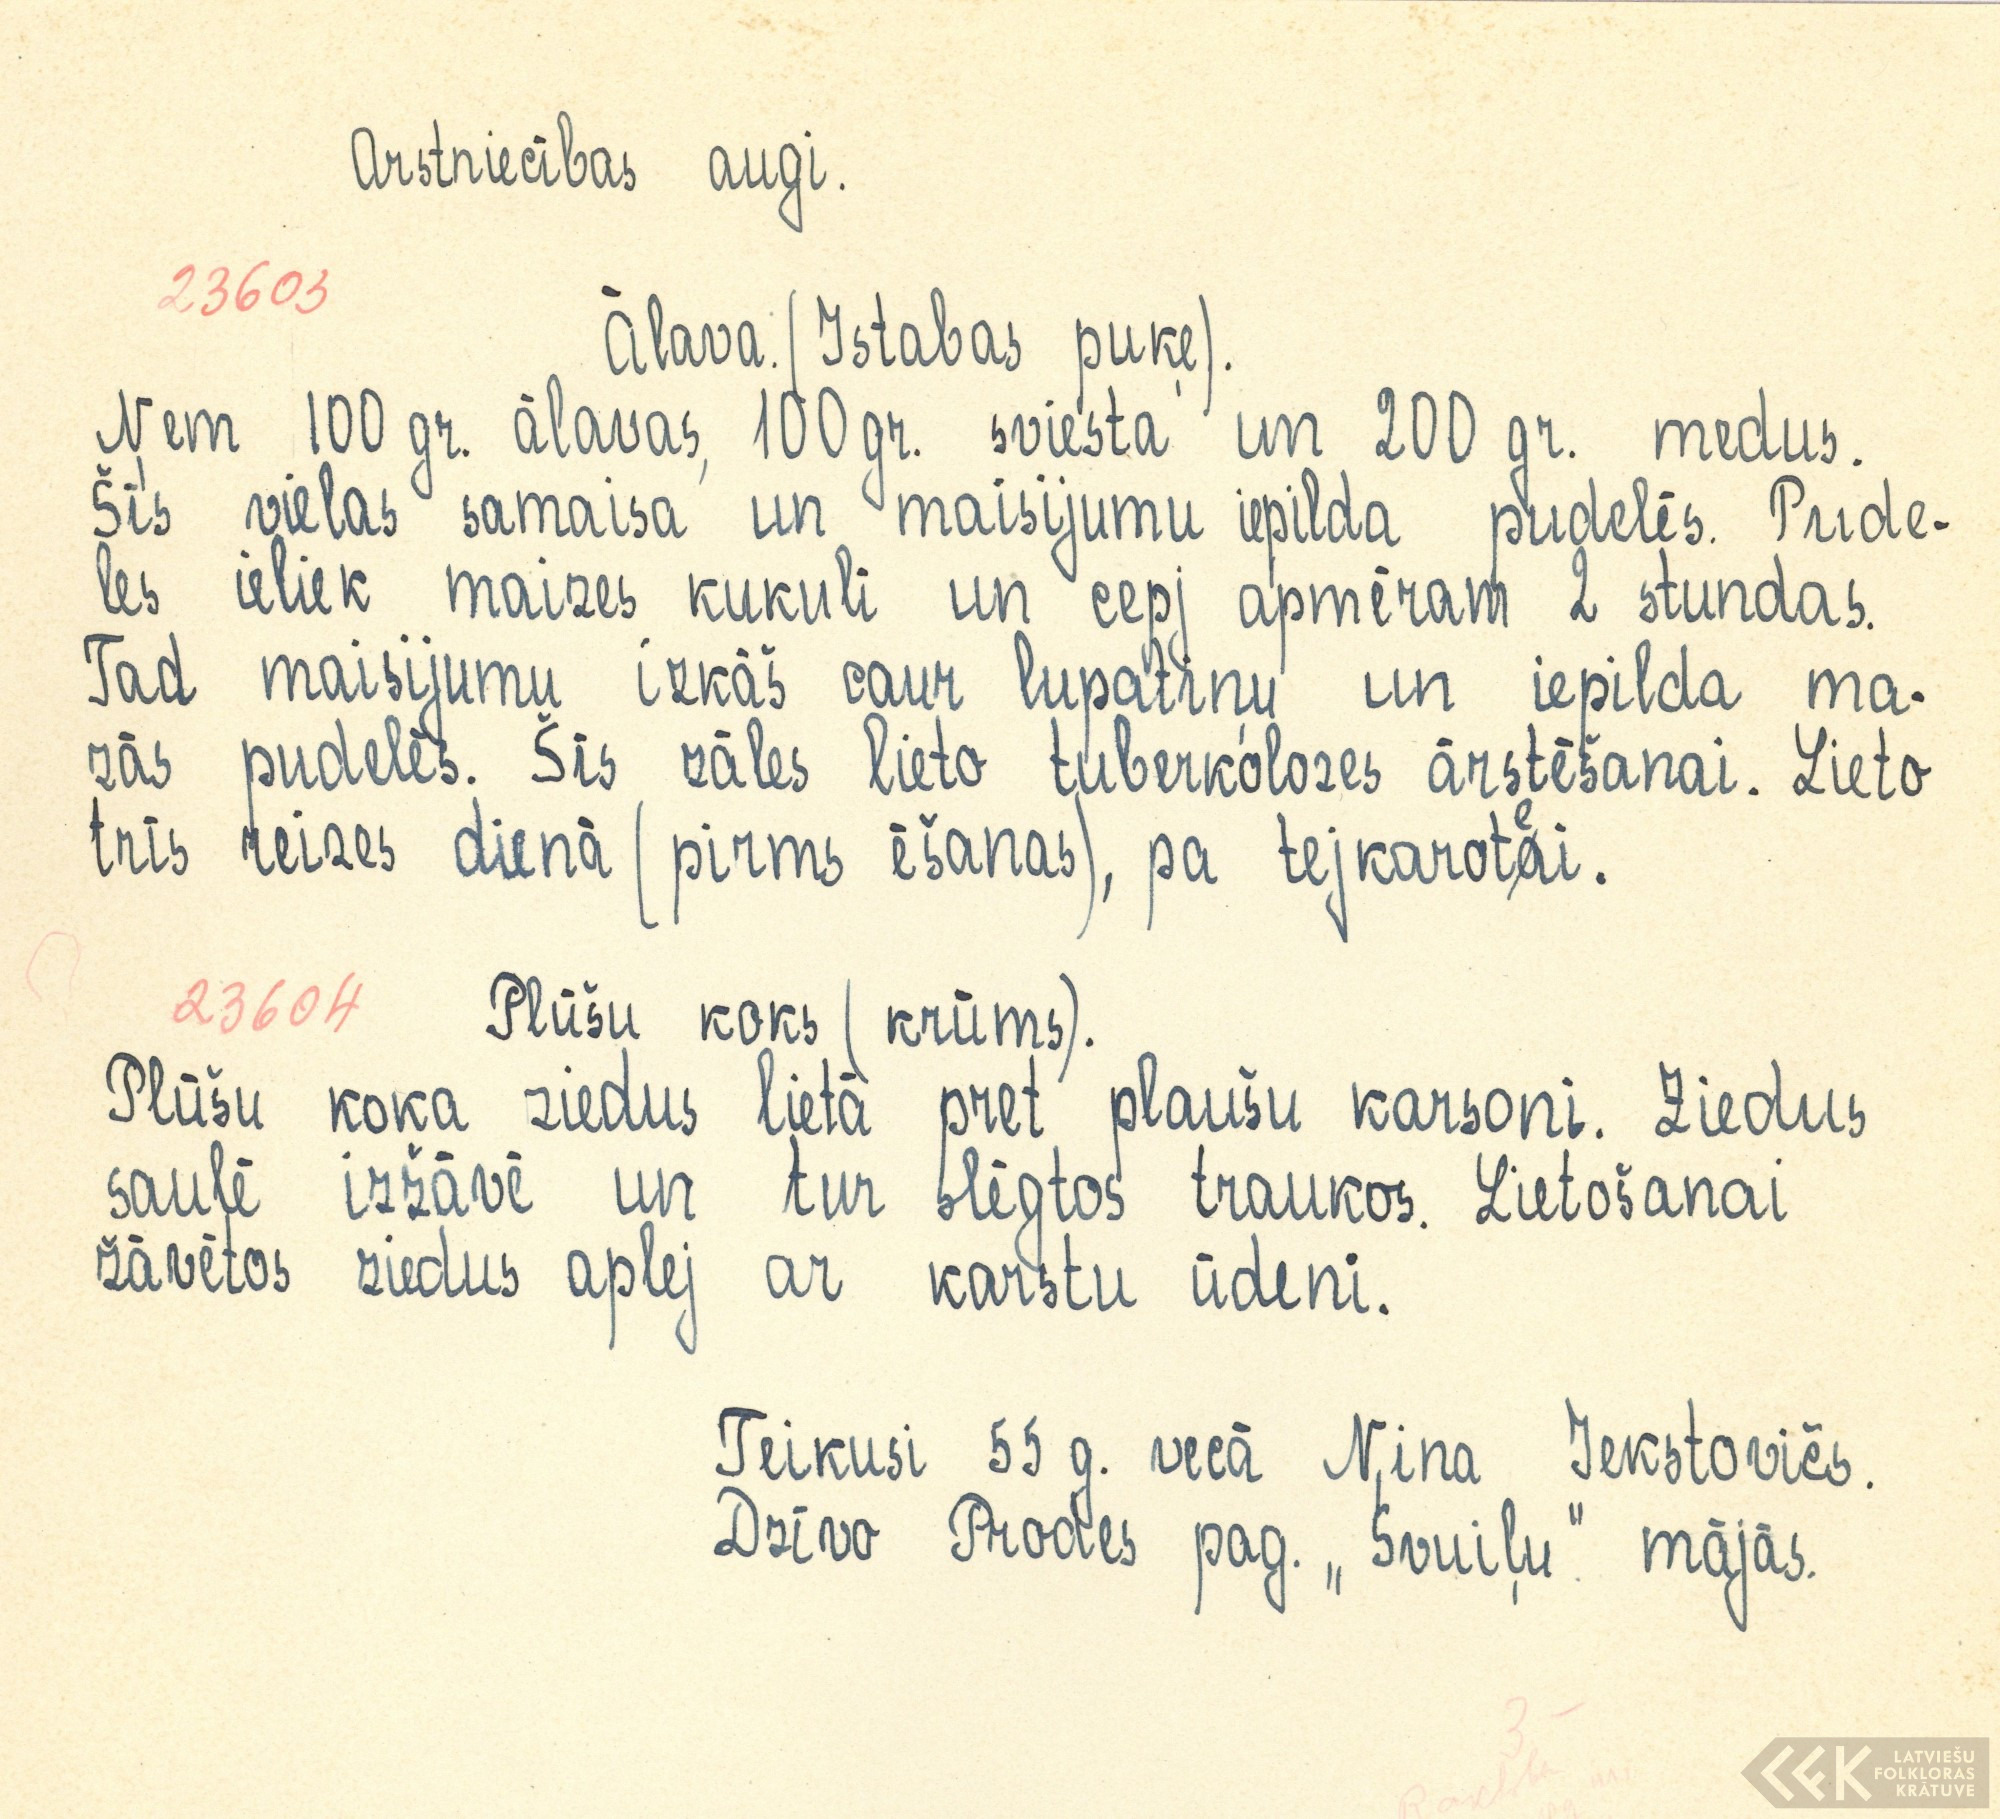 Arstniecības augi.
23603
Ālava. (Istabas puķe).
Ņem 100 gr. ālavas, 100 gr. sviesta un 200 gr. medus.
Šīs vielas samaisa un maisijumu iepilda pudelēs. Pude-
les ieliek maizes kukulī un cepj apmēram 2 stundas.
Tad maisijumu izkāš caur lupatiņu un iepilda ma-
zās pudelēs. Šīs zāles lieto tuberkolozes ārstēšanai. Lieto
trīs reizes dienā (pirms ēšanas), pa tejkarotei.
23604 Plūšu koks (krūms).
Plūšu koka ziedus lietā pret plaušu karsoni. Ziedus
saulē izžāvē un tur slēgtos traukos. Lietošanai
žāvētos ziedus aplej ar karstu ūdeni.
Teikusi 55 g. vecā Ņina Jekstovičs.
Dzīvo Prodes pag. „Svuiļu" mājās.
3-
LATVIEŠU
FOLKLORAS
KRĀTUVE